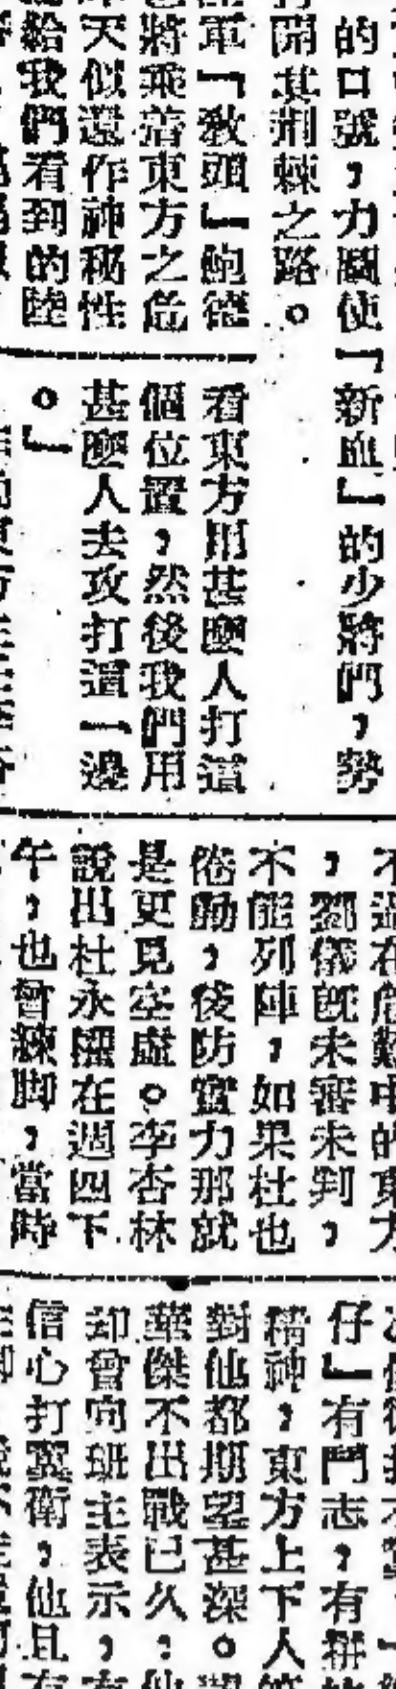 的口號，力闢使「新血」的少將們，勢
開其荆棘之路。
軍「敎頭」鮑德
將乘着東方之危
天似還作神秘性
給我們看到的陸
看東方用甚麼人打這
個位置，然後我們用
甚麼人去攻打這一邊
。」
，鄧儀旣未審未判，
不能列陣，如果杜也
倦勤，後防實力那就
是更見空虛。李杏林
說出杜永耀在週四下
午，也曾練脚，當時
仔」有鬥志，有拼
精神，東方上下人等
對他都期望甚深。
華傑不出戰已久，他
却曾向班主表示，有
信心打翼衛，他且有